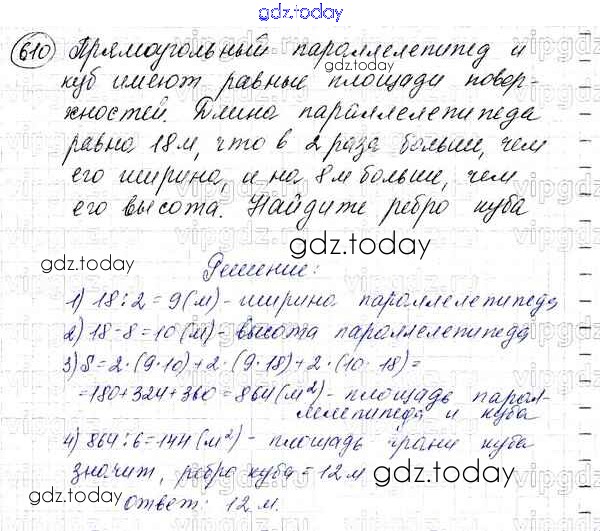 gdz.today
610 Прямоугольный параллелепипед и
куб имеют равные площади повер-
хностей. Длина параллелепипеда
равна 18 м, что в 2 раза больше, чем
его ширина, и на 8 м больше, чем
его высота. Найдите ребро куба
gdz.today
Решение:
1) 18:2=9(м)- ширина параллелепипеда
gdz.today
2) 18-8=10(м)- высота параллелепипеда
3) S=2·(9·10)+2·(9·18)+2·(10·18)=
=180+324+360=864(м²)- площадь парал-
лелепипеда и куба
4) 864:6=144(м²)- площадь грани куба
gdz.today
значит, ребро куба = 12 м
gdz.today
Ответ: 12 м.